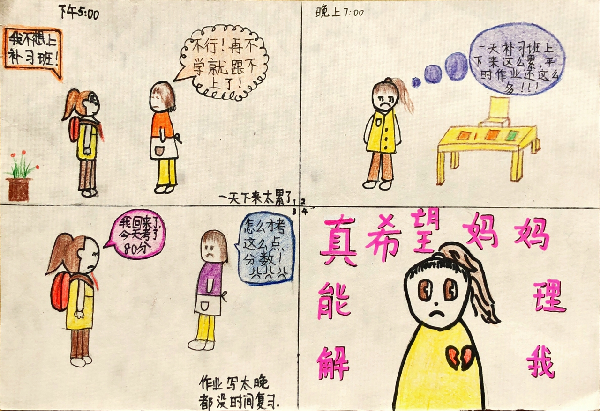 下午5:00
我不想上
补习班!
不行!再不
学就跟不
上了!
一天下来太累了
晚上7:00
一天补习班上
下来这么累,平
时作业还这么
多!!!
1 2
3 4
我回来了
今天考了
80分
怎么才考
这么点
分数!
作业写太晚
都没时间复习.
真希望妈妈
能 理
解 我